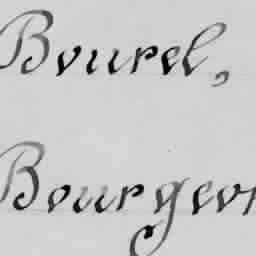 Bourel,
Bourgeon